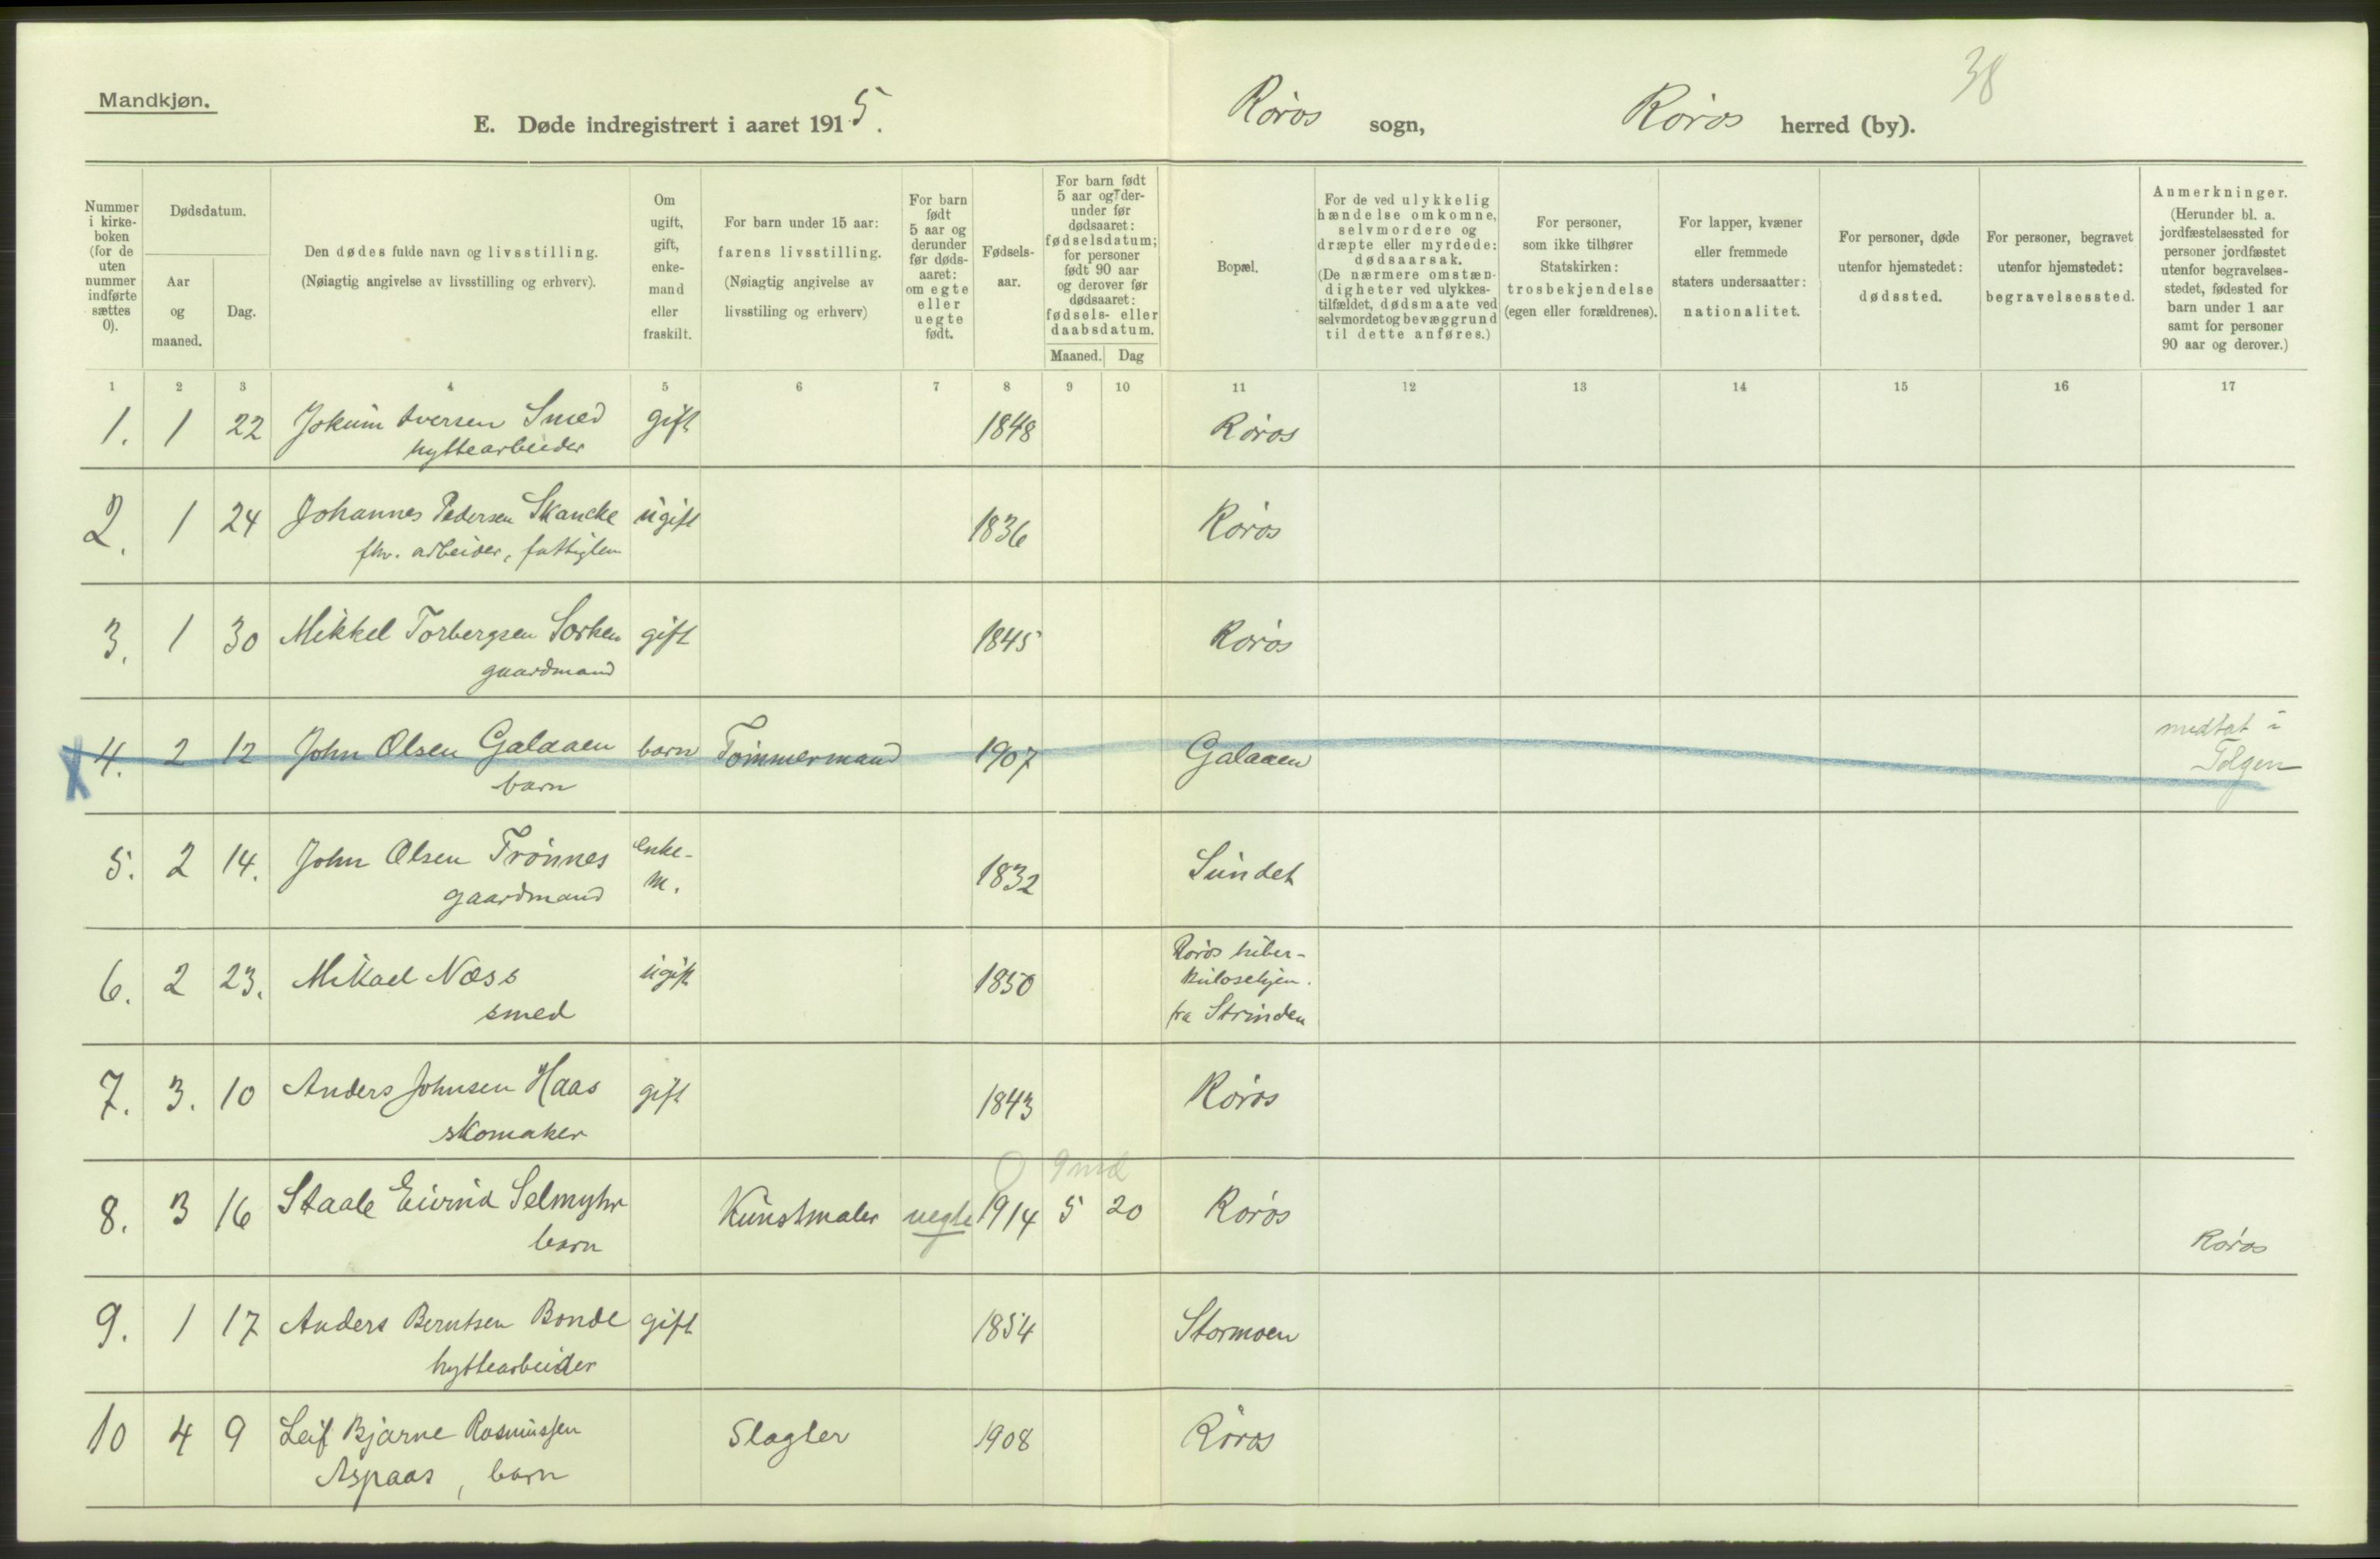 38
Mandkjøn.
E. Døde indregistrert i aaret 1915.
Røros sogn, Røros herred (by).
Nummer
i kirke-
boken
(for de
uten
nummer
indførte
sættes
0).
Dødsdatum.
Aar
og
maaned.
Dag.
Den dødes fulde navn og livsstilling.
(Nøiagtig angivelse av livsstilling og erhverv).
Om
ugift,
gift,
enke-
mand
eller
fraskilt.
For barn under 15 aar:
farens livsstilling.
(Nøiagtig angivelse av
livsstiling og erhverv)
For barn
født
5 aar og
derunder
før døds-
aaret:
om egte
eller
uegte
født.
Fødsels-
aar.
For barn født
5 aar og der-
under før
dødsaaret:
fødselsdatum;
for personer
født 90 aar
og derover før
dødsaaret:
fødsels- eller
daabsdatum.
Maaned. Dag
Bopæl.
For de ved ulykkelig
hændelse omkomne,
selvmordere og
dræpte eller myrdede:
dødsaarsak.
(De nærmere omstæn-
digheter ved ulykkes-
tilfældet, dødsmaate ved
selvmordet og bevæggrund
til dette anføres.)
For personer,
som ikke tilhører
Statskirken:
trosbekjendelse
(egen eller forældrenes).
For lapper, kvæner
eller fremmede
staters undersaatter:
nationalitet.
For personer, døde
utenfor hjemstedet:
dødssted.
For personer, begravet
utenfor hjemstedet:
begravelsessted.
Anmerkninger.
(Herunder bl. a.
jordfæstelsessted for
personer jordfæstet
utenfor begravelses-
stedet, fødested for
barn under 1 aar
samt for personer
90 aar og derover.)
1 2 3 4 5 6 7 8 9 10 11 12 13 14 15 16 17
1. 1 22 Jokum Iversen Smed gift 1848 Røros
hyttearbeider
2. 1 24 Johannes Pedersen Skancke ugift 1836 Røros
fhv. arbeider, fattiglem
3. 1 30 Mikkel Torbergsen Sorken gift 1845 Røros
gaardmand
X 4. 2 12 John Olsen Galaaen barn Tømmermand 1907 Galaaen medtat i
barn Tolgen
5. 2 14. John Olsen Trønnes enke- 1832 Sundet
gaardmand m.
6. 2 23. Mikael Næss ugift 1850 Røros tuber-
smed kulosehjem.
fra Strinden
7. 3. 10 Anders Johnsen Haas gift 1843 Røros
skomaker
0 9 md
8. 3 16 Staale Eivind Selmyhr Kunstmaler uegte 1914 5 20 Røros
barn Røros
9. 1 17 Anders Berntsen Bonde gift 1854 Stormoen
hyttearbeider
10 4 9 Leif Bjarne Rasmussen Slagter 1908 Røros
Aspaas, barn